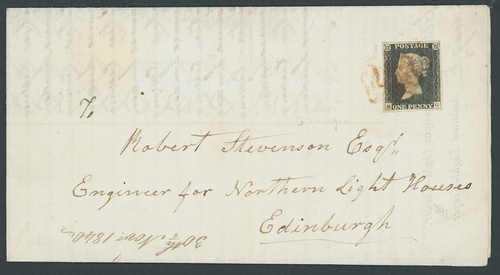 POSTAGE
ONE PENNY
To
Robert Stevenson Esqr.
Engineer for Northern Light Houses
Edinburgh
30th Novr. 1840